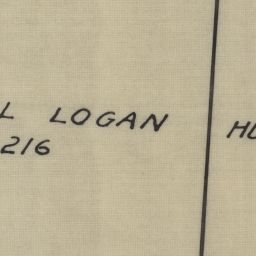 L LOGAN
216